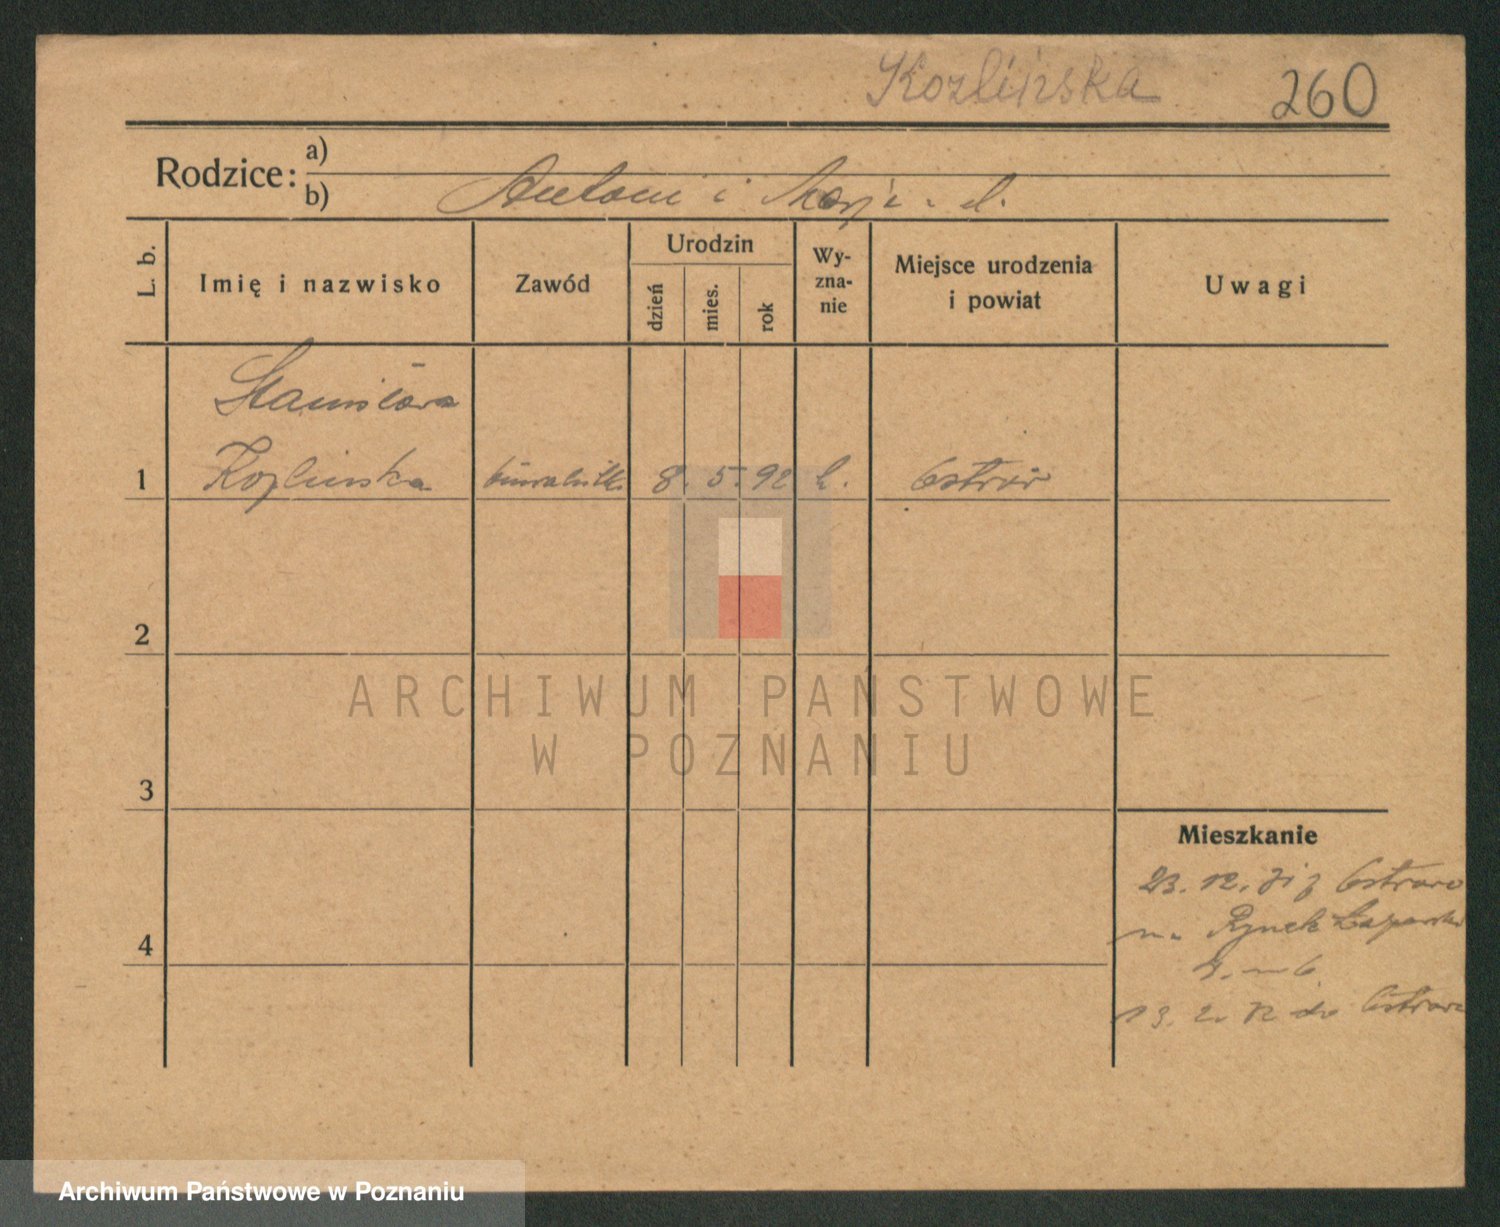 Kozlińska 260
Rodzice: a)
b) Antoni i
L. b.
Imię i nazwisko
Zawód
Urodzin
dzień
mies.
rok
Wy-
zna-
nie
Miejsce urodzenia
i powiat
Uwagi
Stanisława
1 Kozlinska 8. 5. 92 k. Ostrów
2
ARCHIWUM PAŃSTWOWE
W POZNANIU
3
Mieszkanie
23. 12. z Ostrowa
na Rynek Łazarski
4
13. 2. do Ostrowa
Archiwum Państwowe w Poznaniu